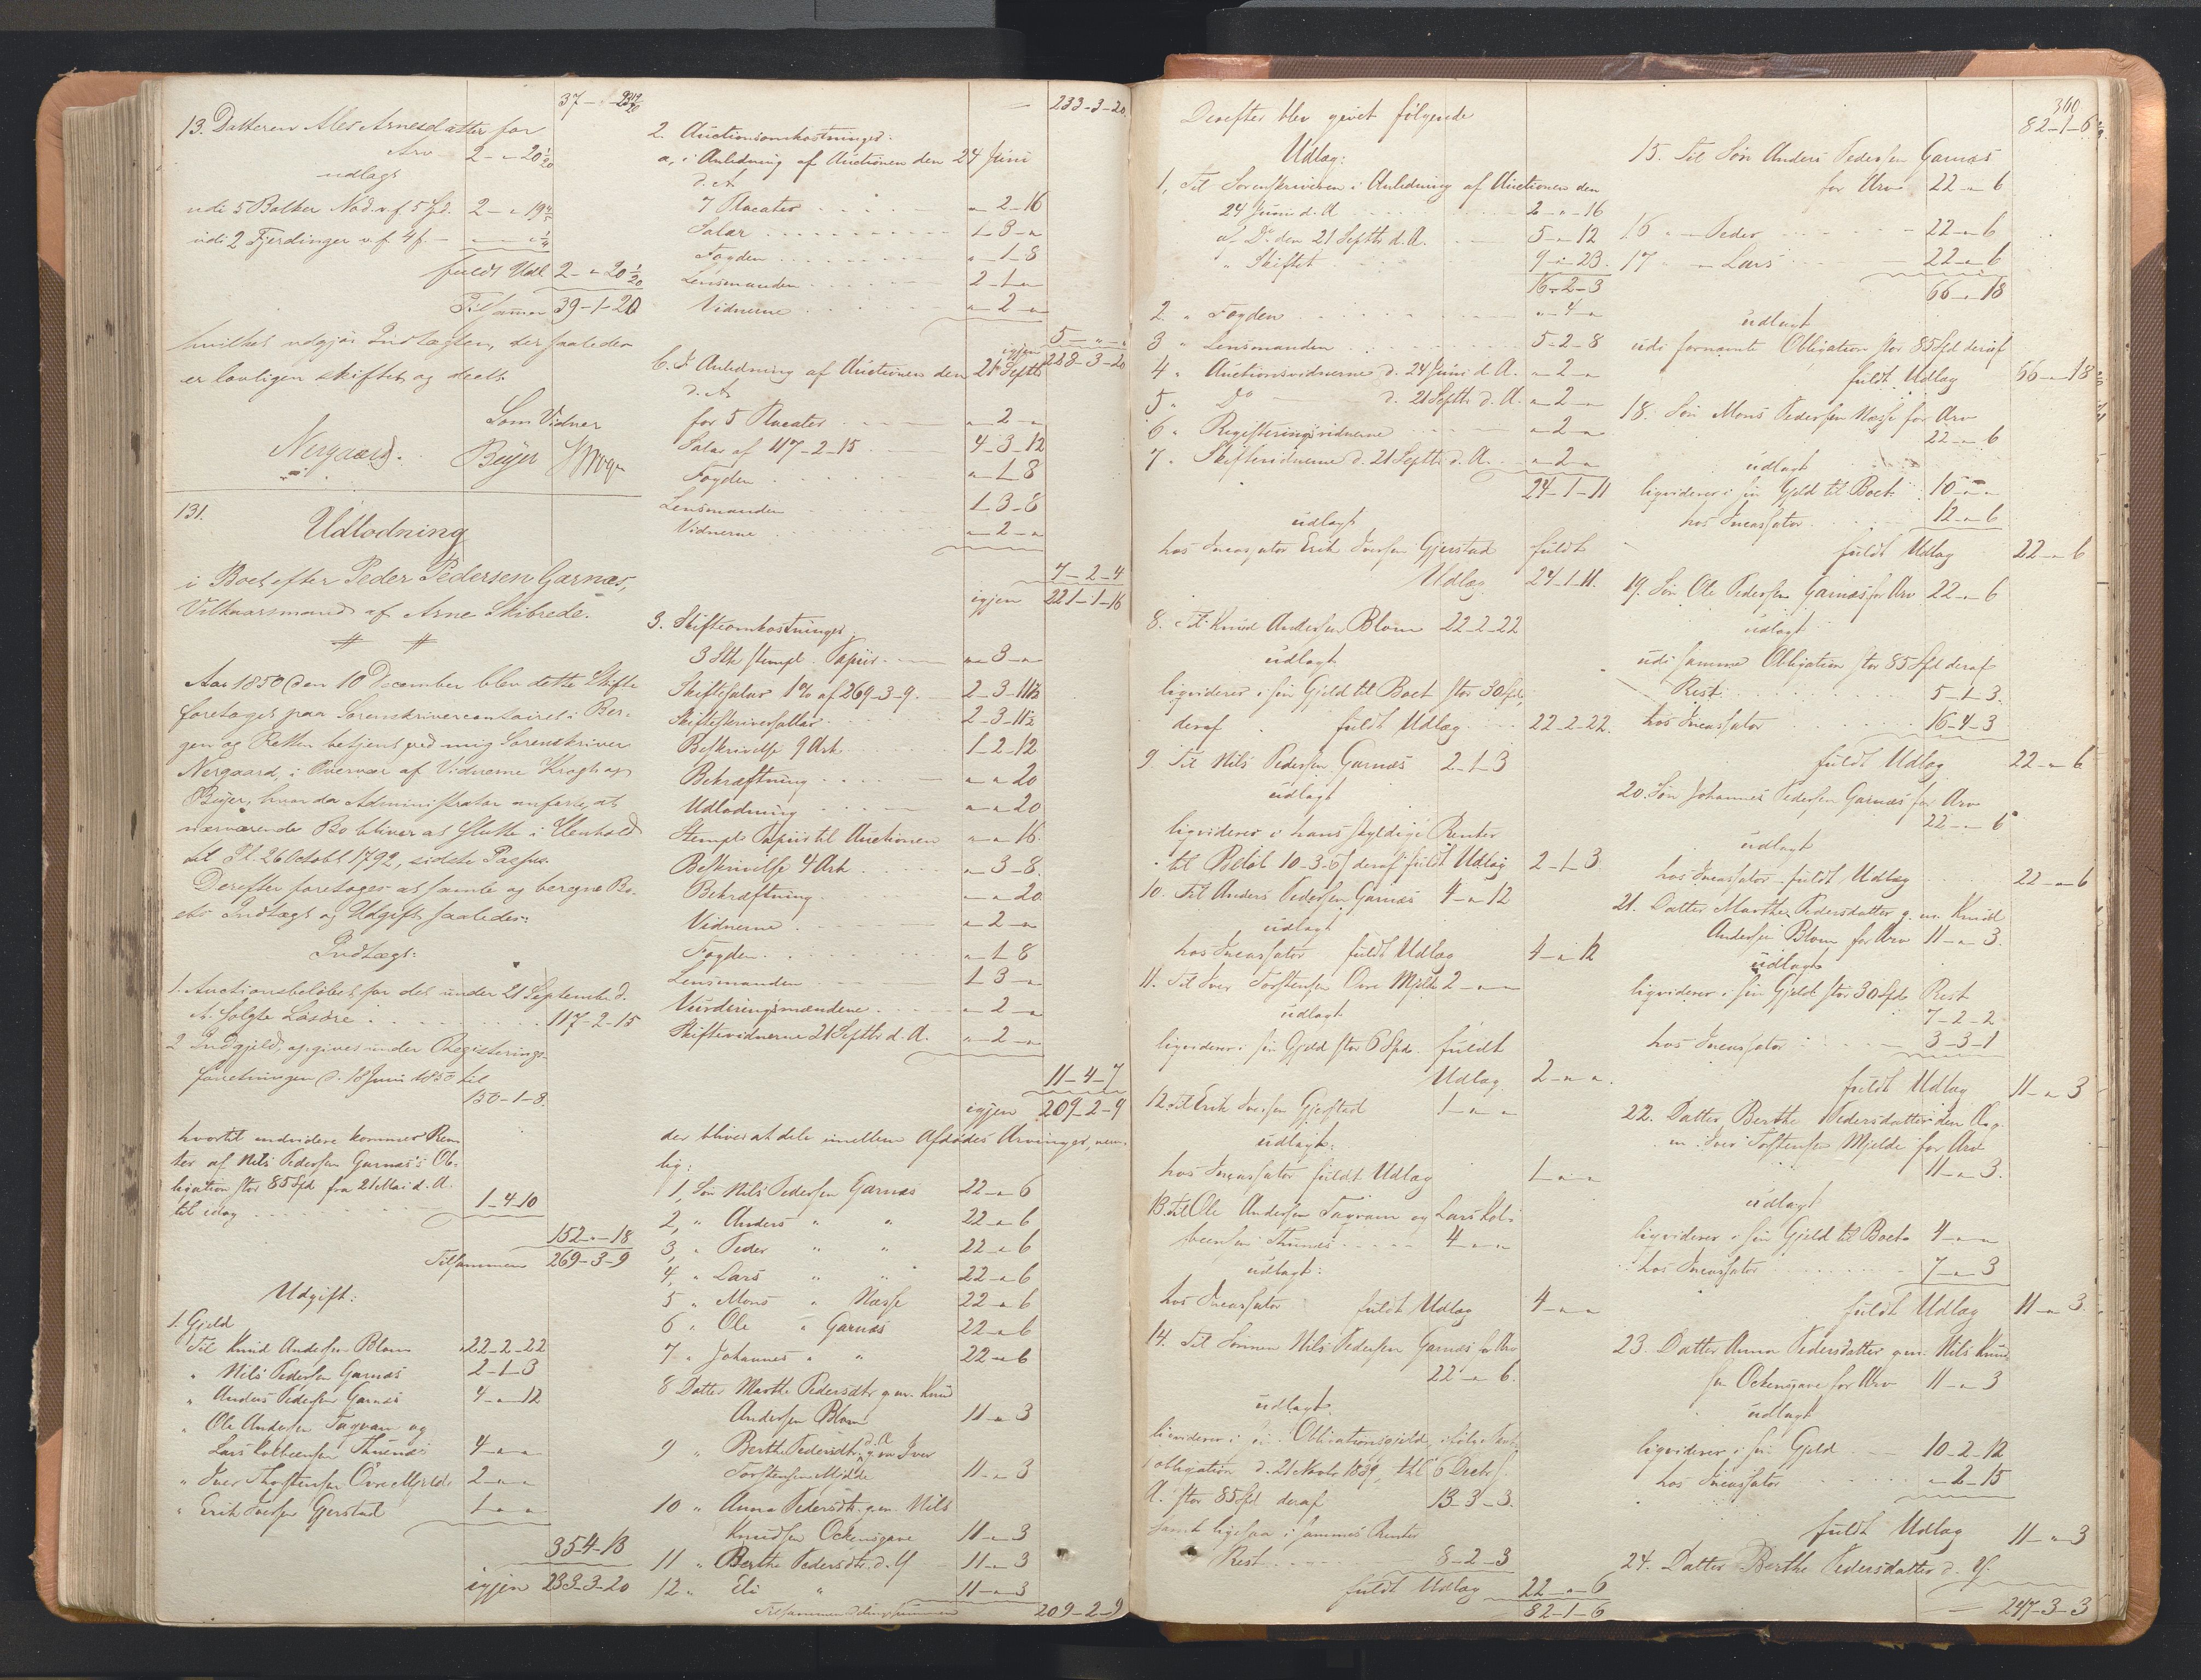 37 - 
13. Datteren Ales Arnesdatter for
Arv 2 - " - 20 1/20
udlagt
udi 5 Bolker No d. v. f. 5 Spd. 2 - " - 19
udi 2 Fjerdinger v. f. 4 ß. - " - " - 1/4
fuldt Udl. 2 - " - 20 1/20
Tilsammen 39-1-20
hvilket udgjør Indtægten, der saaledes
er lovligen skiftet og deelt.
Som Vidner
Nergaard. Beyer Krogh
131.
Udlodning
i Boet efter Peder Pedersen Garnæs,
Vilkaarsmand af Arne Skibrede.
Aar 1850 den 10 December blev dette Skifte
foretaget paa Sorenskrivercontoiret i Ber-
gen og Retten betjent ved mig Sorenskriver
Nergaard, i Overvær af Vidnerne Krogh og
Beyer, hvor da Administrator anførte, at
nærværende Bo bliver at slutte i Henhold
til Pl. 26 Octobr 1792, sidste Passus.
Derefter foretoges at samle og beregne Bo-
ets Indtægt og Udgift saaledes:
Indtægt:
1. Auctionsbeløbet for det under 21 September d.
A. solgte Løsøre . . . 117-2-15
2. Indgjeld, opgivet under Registerings-
forretningen d. 18 Juni 1850 til
150-1-8.
hvortil endvidere kommer Ren-
ter af Nils Pedersen Garnæs's Ob-
ligation stor 85 Spd. fra 21 Mai d. A.
til idag . . . 1-4-10
152-"-18
Tilsammen 269-3-9
Udgift:
1. Gjeld
Til Knud Andersen Blom 22-2-22
" Nils Pedersen Garnæs 2-1-3
" Anders Pedersen Garnæs 4-"-12
" Ole Andersen Tagvam og
Lars Kolbeensen Thunæs 4-"-"
" Iver Thorstensen Øvre Mjelde 2-"-"
" Erik Iversen Gjerstad 1-"-"
35-4-13
igjen 233-3-20
233-3-20.
2. Auctionsomkostninger.
a, i Anledning af Auctionen den 24 Juni
d. A.
7 Placater . . . "-2-16
Salær . . . 1-3-"
Fogden . . . "-1-8
Lensmanden . . . 2-1-"
Vidnerne . . . "-2-"
5-"-"
igjen 228-3-20
b. I Anledning af Auctionen den 21 Septbr
d. A.
for 5 Placater . . . "-2-"
Salær af 117-2-15 . . . 4-3-12
Fogden . . . "-1-8
Lensmanden . . . 1-3-8
Vidnerne . . . "-2-"
7-2-4
igjen 221-1-16
3. Skifteomkostninger.
3 Stk stempl. Papiir . . . "-3-"
Skiftesalær 1% af 269-3-9. 2-3-11½
Skifteskriversallær . . . 2-3-11½
Beskrivelse 9 Ark . . . 1-2-12
Bekræftning . . . "-"-20
Udlodning . . . "-"-20
Stemplt Papiir til Auctionen "-"-16.
Beskrivelse 4 Ark . . . "-3-8.
Bekræftning . . . "-"-20
Vidnerne . . . "-2-"
Fogden . . . "-1-8
Lensmanden . . . 1-3-"
Vurderingsmændene . . . "-2-"
Skiftevidnerne 21 Septbr d. A. "-2-"
11-4-7
igjen 209-2-9
der bliver at dele imellem Afdødes Arvinger, nem-
lig:
1, Søn Nils Pedersen Garnæs 22-"-6
2, " Anders " " 22-"-6
3, " Peder " " 22-"-6
4, " Lars " " 22-"-6
5 " Mons " Næsse 22-"-6
6 " Ole " Garnæs 22-"-6
7 " Johannes " " 22-"-6
8 Datter Marthe Pedersdtr g. m. Knud
Andersen Blom 11-"-3
9 " Berthe Pedersdtr d. Æ. g. m. Iver
Torstensen Mjelde 11-"-3
10 " Anna Pedersdtr g. m. Nils
Knudsen Ockensgave 11-"-3
11 " Berthe Pedersdtr. d. Y. 11-"-3
12 " Eli " 11-"-3
Tilsammen Delingssummen 209-2-9
Derefter blev gjort følgende
Udlæg:
1, Til Sorenskriveren i Anledning af Auctionen den
24 Juni d. A. . . . 2-"-16
af Do den 21 Septbr d. A. . . . 5-"-12
" Skiftet . . . 9-"-23.
16-2-3
2. " Fogden . . . "-4-"
3 " Lensmanden . . . 5-2-8
4 " Auctionsvidnerne d. 24 Juni d. A. "-2-"
5 " Do d. 21 Septbr d. A. "-2-"
6 " Registeringsvidnerne . . . "-2-"
7 " Skiftevidnerne d. 21 Septbr d. A. "-2-"
24-1-11
udlagt
hos Incassator Erik Iversen Gjerstad fuldt
Udlæg 24-1-11.
8. Til Knud Andersen Blom 22-2-22
udlagt
ligviderer i sin Gjeld til Boet stor 30 Spd.,
deraf fuldt Udlæg . . . 22-2-22.
9 Til Nils Pedersen Garnæs 2-1-3
udlagt
ligviderer i hans skyldige Renter
til Beløb 10-3-6, deraf fuldt Udlæg 2-1-3.
10. Til Anders Pedersen Garnæs 4-"-12
udlagt
hos Incassator fuldt Udlæg 4-"-12
11. Til Iver Torstensen Øvre Mjelde 2-"-"
udlagt
ligviderer i sin Gjeld stor 6 Spd. fuldt
Udlæg 2-"-"
12. Til Erik Iversen Gjerstad 1-"-"
udlagt:
hos Incassator fuldt Udlæg 1-"-"
13. Til Ole Andersen Tagvam og Lars Kol-
beensen Thunes . . . 4-"-"
udlagt:
hos Incassator fuldt Udlæg 4-"-"
14. Til Sønnen Nils Pedersen Garnæs for Arv
22-"-6.
udlagt.
ligviderer i Obligationsgjeld, ifølge
obligation d. 21 Novbr 1839, thl. 6 Decbr s.
A. stor 85 Spd deraf 13-3-3.
samt ligesaa i sammes Renter
Rest . . . 8-2-3
fuldt Udlæg 22-"-6
82-1-6
360.
82-1-6
15. Til Søn Anders Pedersen Garnæs
for Arv 22-"-6
16 " - Peder . . . 22-"-6
17 " - Lars . . . 22-"-6
66-"-18
udlagt
udi fornævnte Obligation stor 85 Spd deraf
fuldt Udlæg 66-"-18
18. Søn Mons Pedersen Næsse for Arv
22-"-6
udlagt
ligviderer i sin Gjeld til Boet 10-"-"
hos Incassator . . . 12-"-6
fuldt Udlæg 22-"-6
19. Søn Ole Pedersen Garnæs for Arv 22-"-6
udlagt
udi samme Obligation stor 85 Spd deraf
Rest . . . 5-1-3.
hos Incassator . . . 16-4-3
fuldt Udlæg 22-"-6
20. Søn Johannes Pedersen Garnæs for Arv
22-"-6
udlagt
hos Incassator fuldt Udlæg 22-"-6
21. Datter Marthe Pedersdatter g. m. Knud
Andersen Blom for Arv 11-"-3.
udlagt
ligviderer i sin Gjeld stor 30 Spd. Rest
7-2-2
hos Incassator . . . 3-3-1
fuldt Udlæg 11-"-3
22. Datter Berthe Pedersdatter den Æ. g.
m. Iver Torstensen Mjelde for Arv
11-"-3.
udlagt
ligviderer i sin Gjeld til Boet 4-"-"
hos Incassator . . . 7-"-3
fuldt Udlæg 11-"-3.
23. Datter Anna Pedersdatter g. m. Nils Knud-
sen Ockensgave for Arv 11-"-3
udlagt
ligviderer i sin Gjeld . . . 10-2-12
hos Incassator . . . "-2-15
fuldt Udlæg 11-"-3
24. Datter Berthe Pedersdatter d. Y.
247-3-3